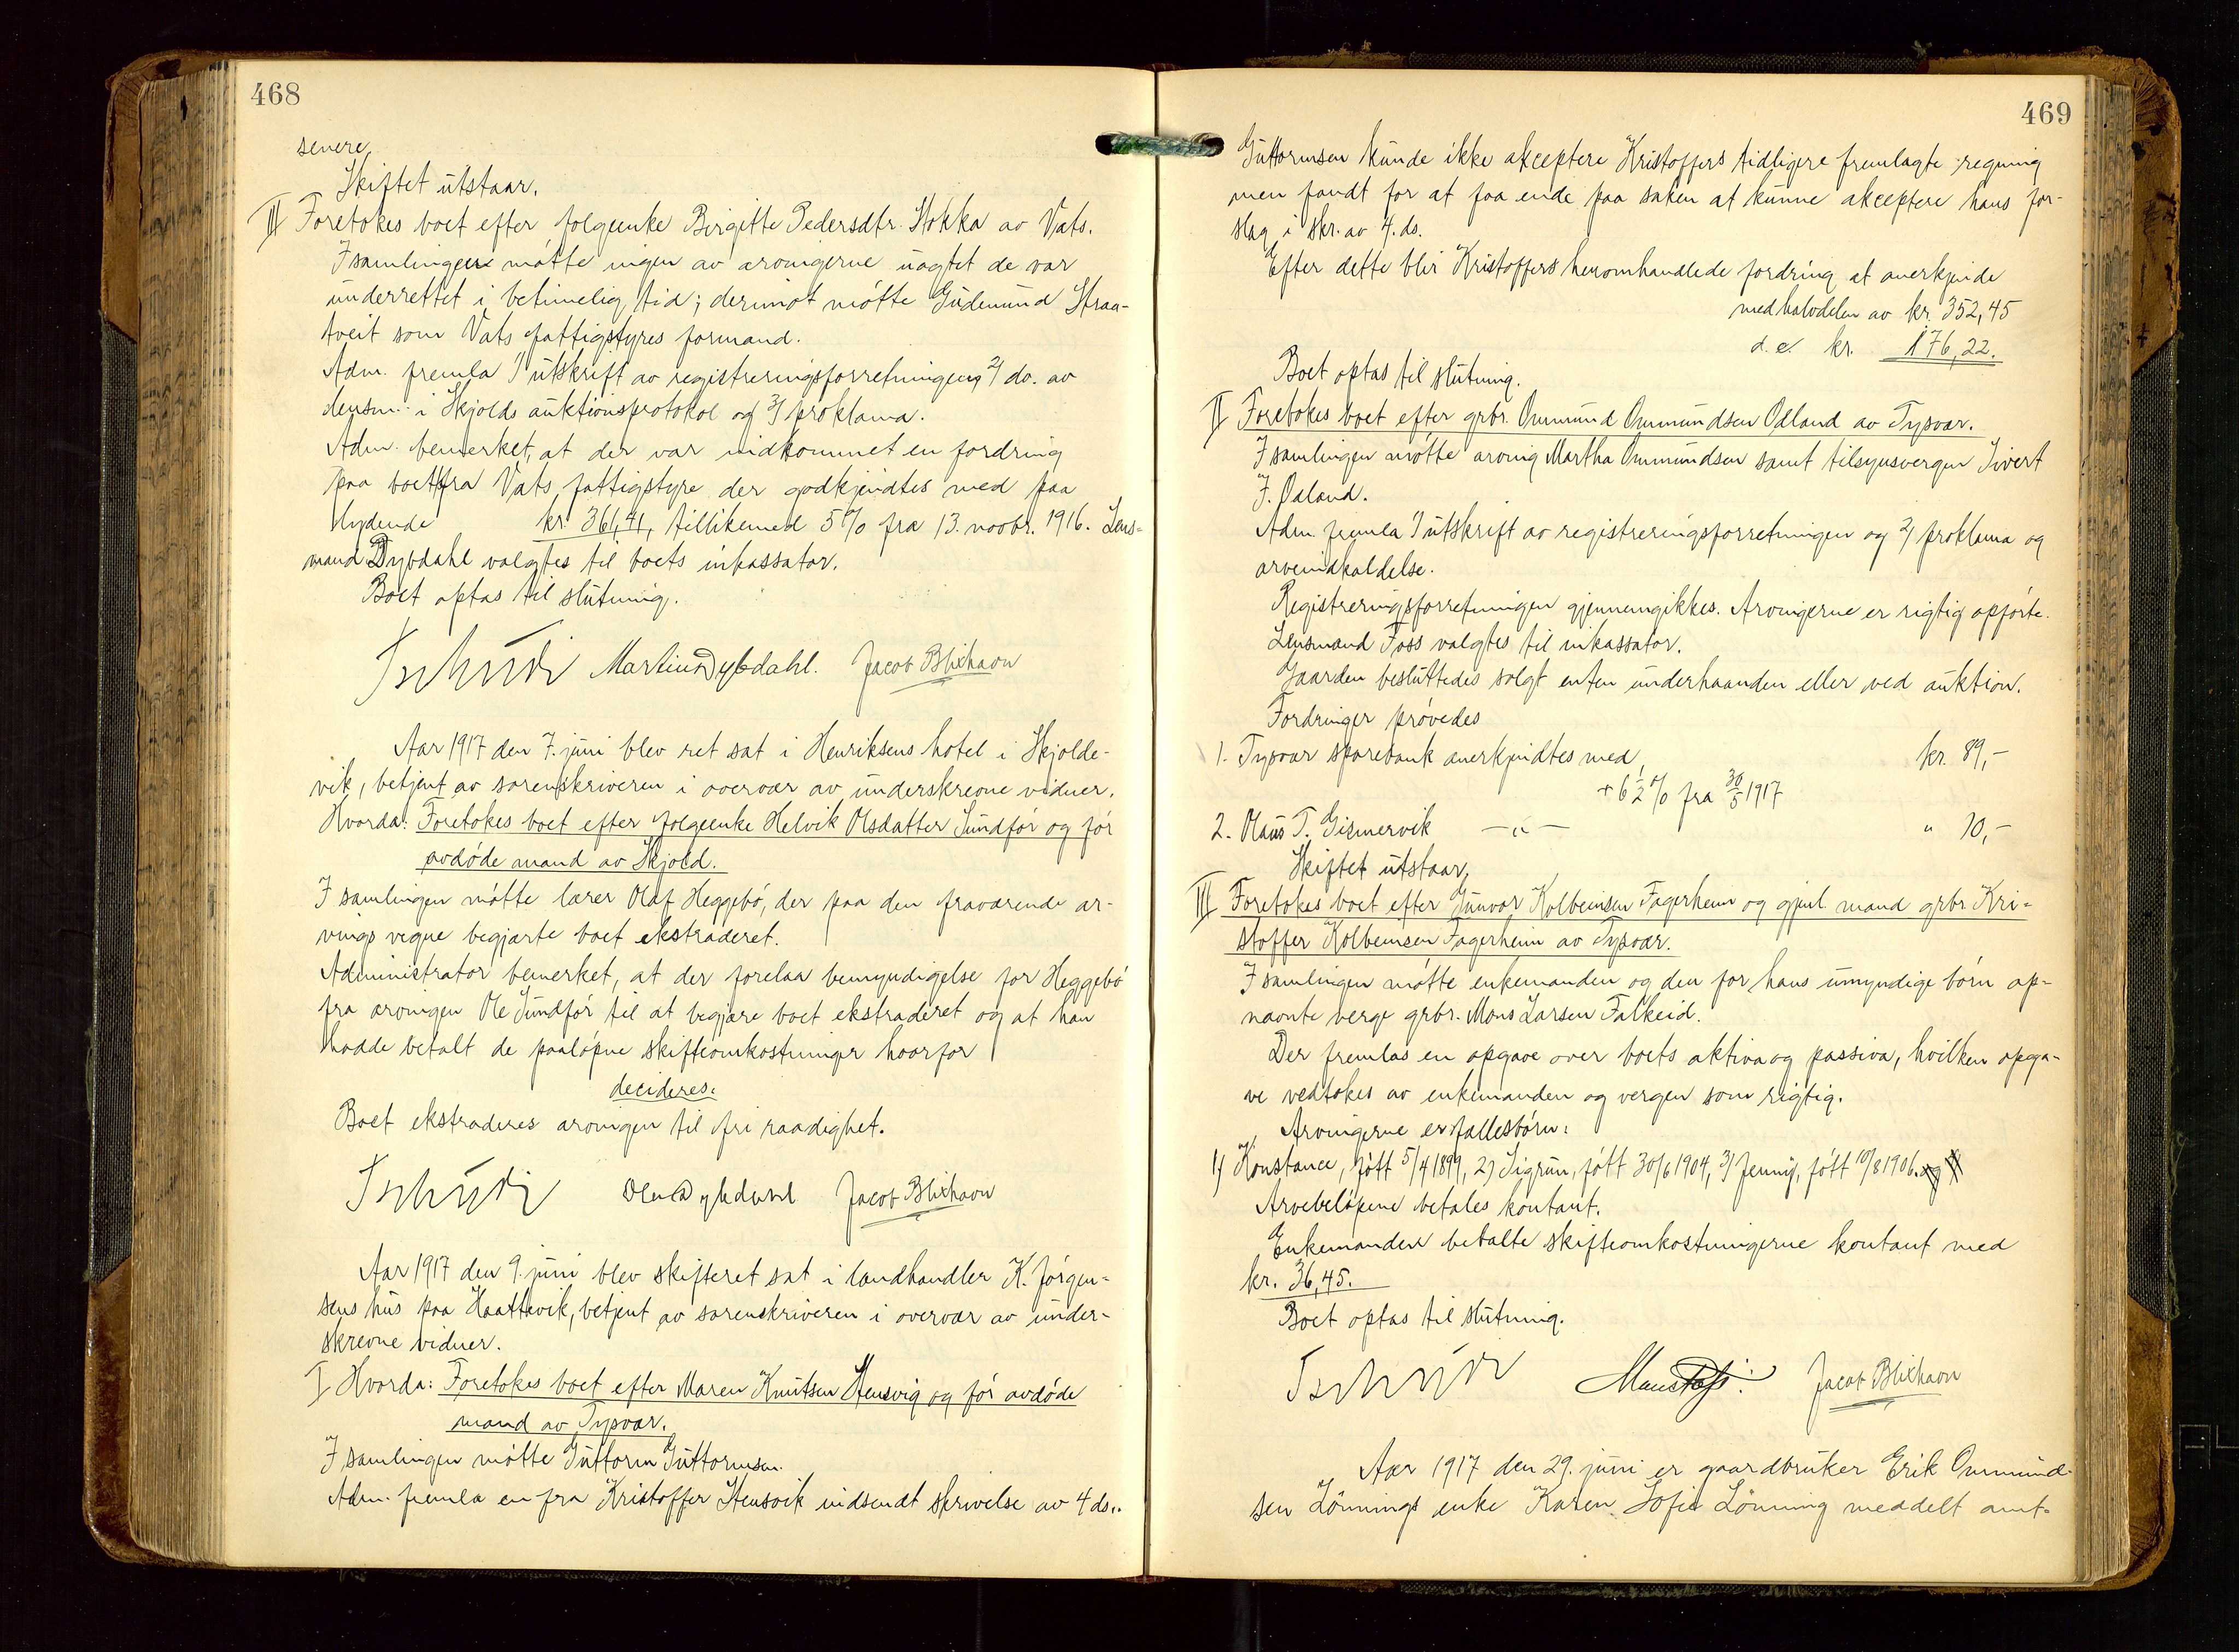 468
senere.
Skiftet utstaar.
III Foretokes boet efter folgeenke Birgitte Pedersdtr. Stokka av Vats.
I samlingen møtte ingen av arvingerne uagtet de var
underrettet i betimelig tid; derimot møtte Gudmund Straa-
tveit som Vats fattigstyres formand.
Adm. fremla 1) utskrift av registreringsforretningen, 2) do. av
lensm. i Skjolds auktionsprotokol og 3) proklama.
Adm. bemerket, at der var indkommet en fordring
paa boet fra Vats fattigstyre der godkjendtes med paa
lydende kr. 361,41, tillikemed 5 % fra 13. novbr. 1916. Lens-
mand Dybdahl valgtes til boets inkassator.
Boet optas til slutning.
Tschudi Martin Dybdahl. Jacob Blixhavn
Aar 1917 den 7. juni blev ret sat i Henriksens hotel i Skjolde-
vik, betjent av sorenskriveren i overvær av underskrevne vidner.
Hvorda: Foretokes boet efter folgeenke Helvik Olsdatter Sundfør og før
avdøde mand av Skjold.
I samlingen møtte lærer Olaf Heggebø, der paa den fraværende ar-
vings vegne begjærte boet ekstraderet.
Administrator bemerket, at der forelaa bemyndigelse for Heggebø
fra arvingen Ole Sundfør til at begjære boet ekstraderet og at han
hadde betalt de paaløpne skifteomkostninger hvorfor
decideres:
Boet ekstraderes arvingen til fri raadighet.
Tschudi Jacob Blixhavn
Aar 1917 den 9. juni blev skifteret sat i landhandler K. Jørgen-
sens hus paa Haattevik, betjent av sorenskriveren i overvær av under-
skrevne vidner.
I Hvorda: Foretokes boet efter Maren Knutsen Stensvig og før avdøde
mand av Tysvær.
I samlingen møtte Guttorm Guttormsen.
Adm. fremla en fra Kristoffer Stensvik indsendt skrivelse av 4 ds..
469
Guttormsen kunde ikke akceptere Kristoffers tidligere fremlagte regning
men fandt for at faa ende paa saken at kunne akceptere hans for-
slag i skr. av 4. ds.
Efter dette blir Kristoffers heromhandlede fordring at anerkjende
med halvdelen av kr. 352,45
d. e. kr. 176,22.
Boet optas til slutning.
II Foretokes boet efter grbr. Ommund Ommundsen Odland av Tysvær.
I samlingen møtte arving Martha Ommundsen samt tilsynsvergen Sivert
J. Odland.
Adm. fremla 1) utskrift av registreringsforretningen og 2) proklama og
arveindkaldelse.
Registreringsforretningen gjennemgikkes. Arvingerne er rigtig opførte.
Lensmand Foss valgtes til inkassator.
Gaarden besluttedes solgt enten underhaanden eller ved auktion.
Fordringer prøvedes
1. Tysvær sparebank anerkjendtes med kr. 89,-
+ 6 1/2 % fra 30/5 1917
2. Olaus T. Gismervik —"— " 10,-
Skiftet utstaar.
III Foretokes boet efter Gunvor Kolbeinsen Fagerheim og gjenl. mand grbr. Kri-
stoffer Kolbeinsen Fagerheim av Tysvær.
I samlingen møtte enkemanden og den for hans umyndige børn op-
nævnte verge grbr. Mons Larsen Falkeid.
Der fremlas en opgave over boets aktiva og passiva, hvilken opga-
ve vedtokes av enkemanden og vergen som rigtig.
Arvingerne er fællesbørn:
1) Konstance, født 5/4 1899, 2) Sigrun, født 30/6 1904, 3) Jenny, født 10/8 1906.
Arvebeløpene betales kontant.
Enkemanden betalte skifteomkostningerne kontant med
kr. 36,45.
Boet optas til slutning.
Tschudi Jacob Blixhavn
Aar 1917 den 29. juni er gaardbruker Erik Ommund-
sen Lønnings enke Karen Sofie Lønning meddelt amt-